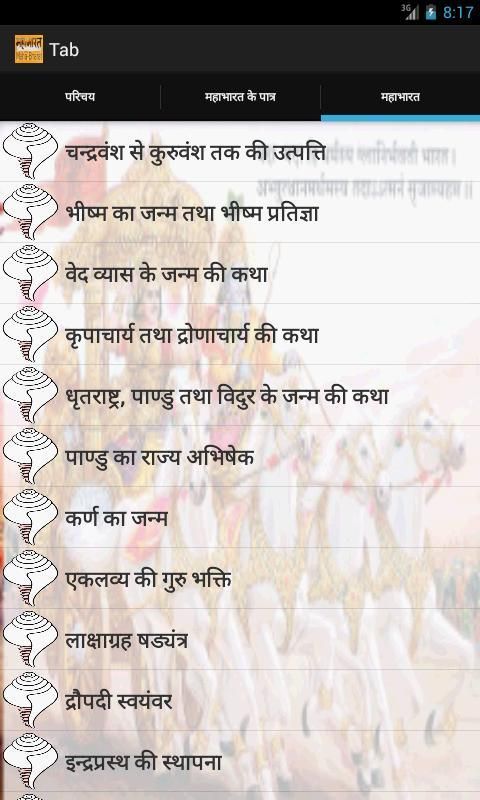 3G 8:17
महाभारत
Maha-Bharat
Tab
परिचय
महाभारत के पात्र
महाभारत
चन्द्रवंश से कुरुवंश तक की उत्पत्ति
भीष्म का जन्म तथा भीष्म प्रतिज्ञा
वेद व्यास के जन्म की कथा
कृपाचार्य तथा द्रोणाचार्य की कथा
धृतराष्ट्र, पाण्डु तथा विदुर के जन्म की कथा
पाण्डु का राज्य अभिषेक
कर्ण का जन्म
एकलव्य की गुरु भक्ति
लाक्षाग्रह षड्यंत्र
द्रौपदी स्वयंवर
इन्द्रप्रस्थ की स्थापना